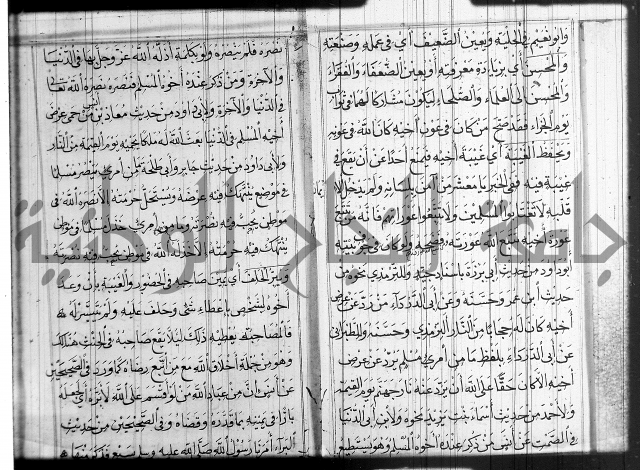 وابو نعيم في الحلية ويعين الضعيف أي في عمله وصنعته
والمحسن أي بزيادة معرفته او يعين الضعفاء والفقراء
والمحسن الى العلماء والصلحاء ليكون مشاركا لهما في ثواب
يوم الجزاء فقد صح من كان في عون اخيه كان الله في عونه
ويحفظ الغيبة أي غيبة اخيه فيمنع احدا عن ان يقع في
غيبته فيه ففي الخبر يا معشر من آمن بلسانه ولم يدخل الايمان
قلبه لا تغتابوا المسلمين ولا تتبعوا عوراتهم فانه من تتبع
عورة اخيه تتبع الله عورته يفضحه ولو كان في جوف بيته
ابو داود من حديث ابي برزة باسناد جيد وللترمذي نحوه من
حديث ابن عمر وحسنه وعن ابي الدرداء من رد عن عرض
اخيه كان له حجابا من النار الترمذي وحسنه وللطبراني
عن ابي الدرداء بلفظ ما من امرئ مسلم يرد عن عرض
اخيه الا كان حقا على الله أن يرد عنه نار جهنم يوم القيمة
ولاحمد من حديث اسماء بنت يزيد نحوه ولابن ابي الدنيا
في الصمت عن انس من ذكر عنده اخوه المسلم وهو يستطيع
نصره فلم ينصره ولو بكلمة اذله الله عز وجل بها في الدنيا
والآخرة ومن ذكر عنده اخوه المسلم فنصره نصره الله تعالى
في الدنيا والآخرة ولابي داود من حديث معاذ بن انس من حمى عرض
اخيه المسلم في الدنيا بعث الله له ملكا يحميه يوم القيمة من النار
ولابي داود من حديث جابر وابي طلحة ما من امرئ ينصر مسلما
في موضع ينتهك فيه عرضه ويستحل حرمته الا نصره الله في
موطن يحب فيه نصرته وما من امرئ خذل مسلما في موطن
ينتهك فيه حرمته الا خذله الله في موطن يحب فيه نصرته
ويبر الحلف أي يمين صاحبه في الحضور والغيبة بان وعد
اخوه لشخص باعطاء شئ وحلف عليه ولم يتيسر له
فالمصاحب يعطيه ذلك لئلا يقع صاحبه في الحنث هنالك
وهو من جملة اخلاق الله مع من اتبع رضاه كما ورد في الصحيحين
عن أنس ان من عباد الله من لو اقسم على الله لابره أي لجعله
بارا في يمينه بما قدره وقضاه وفي الصحيحين من حديث
البراء أمرنا رسول الله صلى الله عليه وسلم بسبع فذكر منها